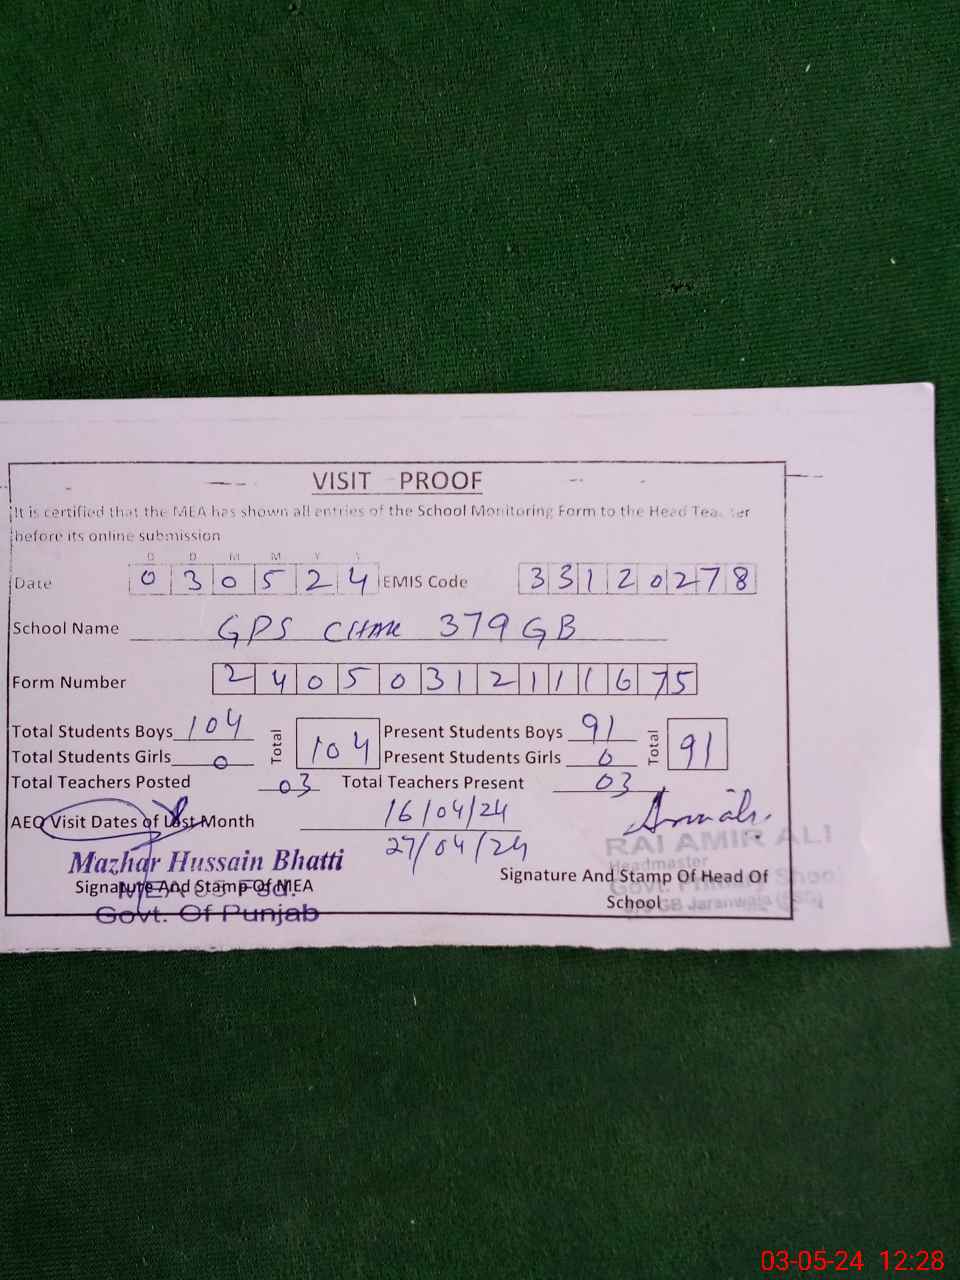 VISIT PROOF
It is certified that the MEA has shown all entries of the School Monitoring Form to the Head Teacher
before its online submission
D D M M Y Y
Date 030524 EMIS Code 33120278
School Name GPS CHAK 379 GB
Form Number 2405031211675
Total Students Boys 104 Total 104 Present Students Boys 91 Total 91
Total Students Girls 0 Present Students Girls 0
Total Teachers Posted 03 Total Teachers Present 03
AEO Visit Dates of Last Month 16/04/24
27/04/24
RAI AMIR ALI
Mazhar Hussain Bhatti
Headmaster
Signature And Stamp Of MEA
Signature And Stamp Of Head Of
School
Govt. Primary School
Govt. Of Punjab
GB Jaranwala
03-05-24 12:28